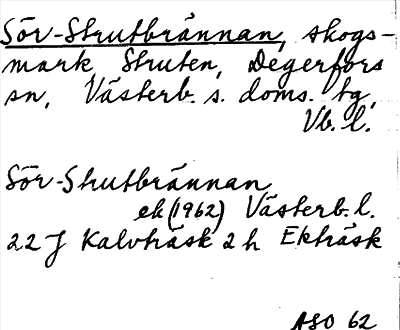 Sör-Strutbrännan, skogs-
mark Struten, Degerfors
sn, Västerb. s. doms. tg,
Vb. l.
Sör-Strutbrännan
ek (1962) Västerb. l.
22 J Kalvträsk 2 h Ekträsk
ASO 62